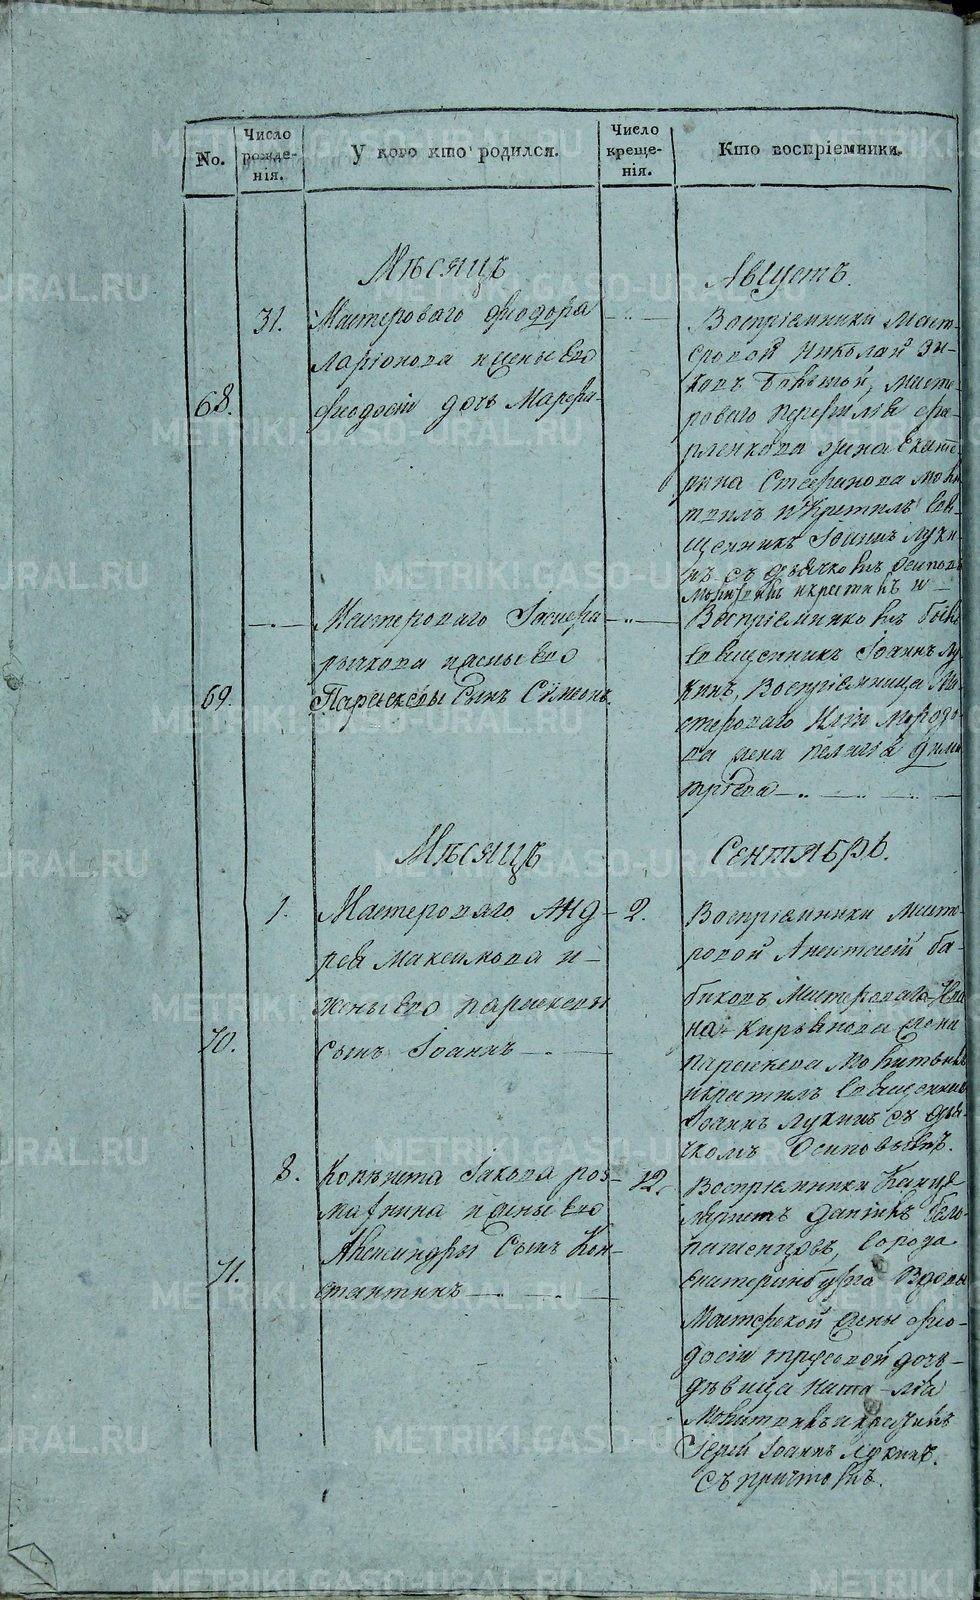 No.
Число рожде-нія.
У кого кто родился.
Число креще-нія.
Кто воспріемники.
Мѣсяцъ
Августъ.
68.
31.
Мастероваго Ѳеодора
Ларіонова и жены Его
Ѳеодосіи дочь Марѳа
Воспріемники Масте-
ровой Николай Зы-
ковъ, Масте-
роваго Перфилья
жена Екате-
рина Стефанова Моли-
твилъ и Крестилъ Свя-
щенникъ Іоаннъ Луки-
нъ съ дьячкомъ Осиповы
69.
Мастероваго
рычкова и жены Его
Параскевы Сынъ Сѵмеонъ.
Молитвилъ и крестилъ и
Воспріемникомъ былъ
Священникъ Іоаннъ Лу-
кинъ, Воспріемница Ма-
стероваго
жена Пелагея Дими-
тріева
Мѣсяцъ
Сентябрь.
70.
1.
Мастероваго Анд-
рея Максимова и
жены Его Параскевы
сынъ Іоаннъ
2.
Воспріемники Масте-
ровой Алексей ба-
биковъ Мастероваго
Кирьянова жена
Параскева Молитвилъ
и крестилъ Священникъ
Іоаннъ Лукинъ съ дья-
чкомъ Осиповымъ.
71.
8.
Копіиста Іакова роз-
манина и жены Его
Александры Сынъ Кон-
стантинъ
12.
Воспріемники Канце-
ляристъ
Города
Екатеринбурга Вдовы
Мастерской жены Ѳео-
досіи дочь
дѣвица Ната-лія
Молитвилъ и крестилъ
Іерей Іоаннъ Лукинъ.
Съ причтомъ.
METRIKI.GASO-URAL.RU